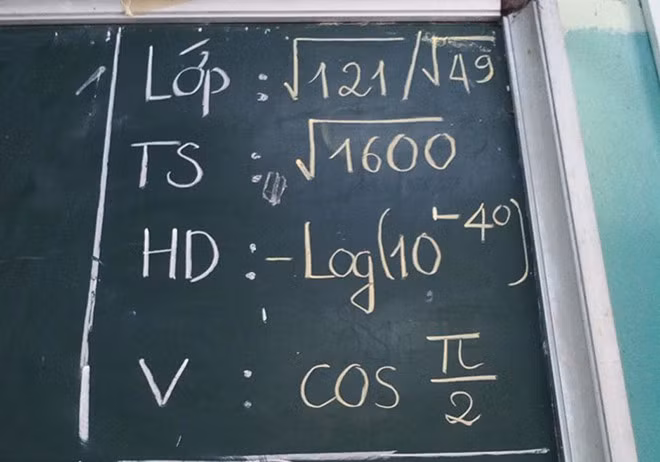 Lớp : √121/√49
TS : √1600
HD : -Log(10^-40)
V : cos π/2